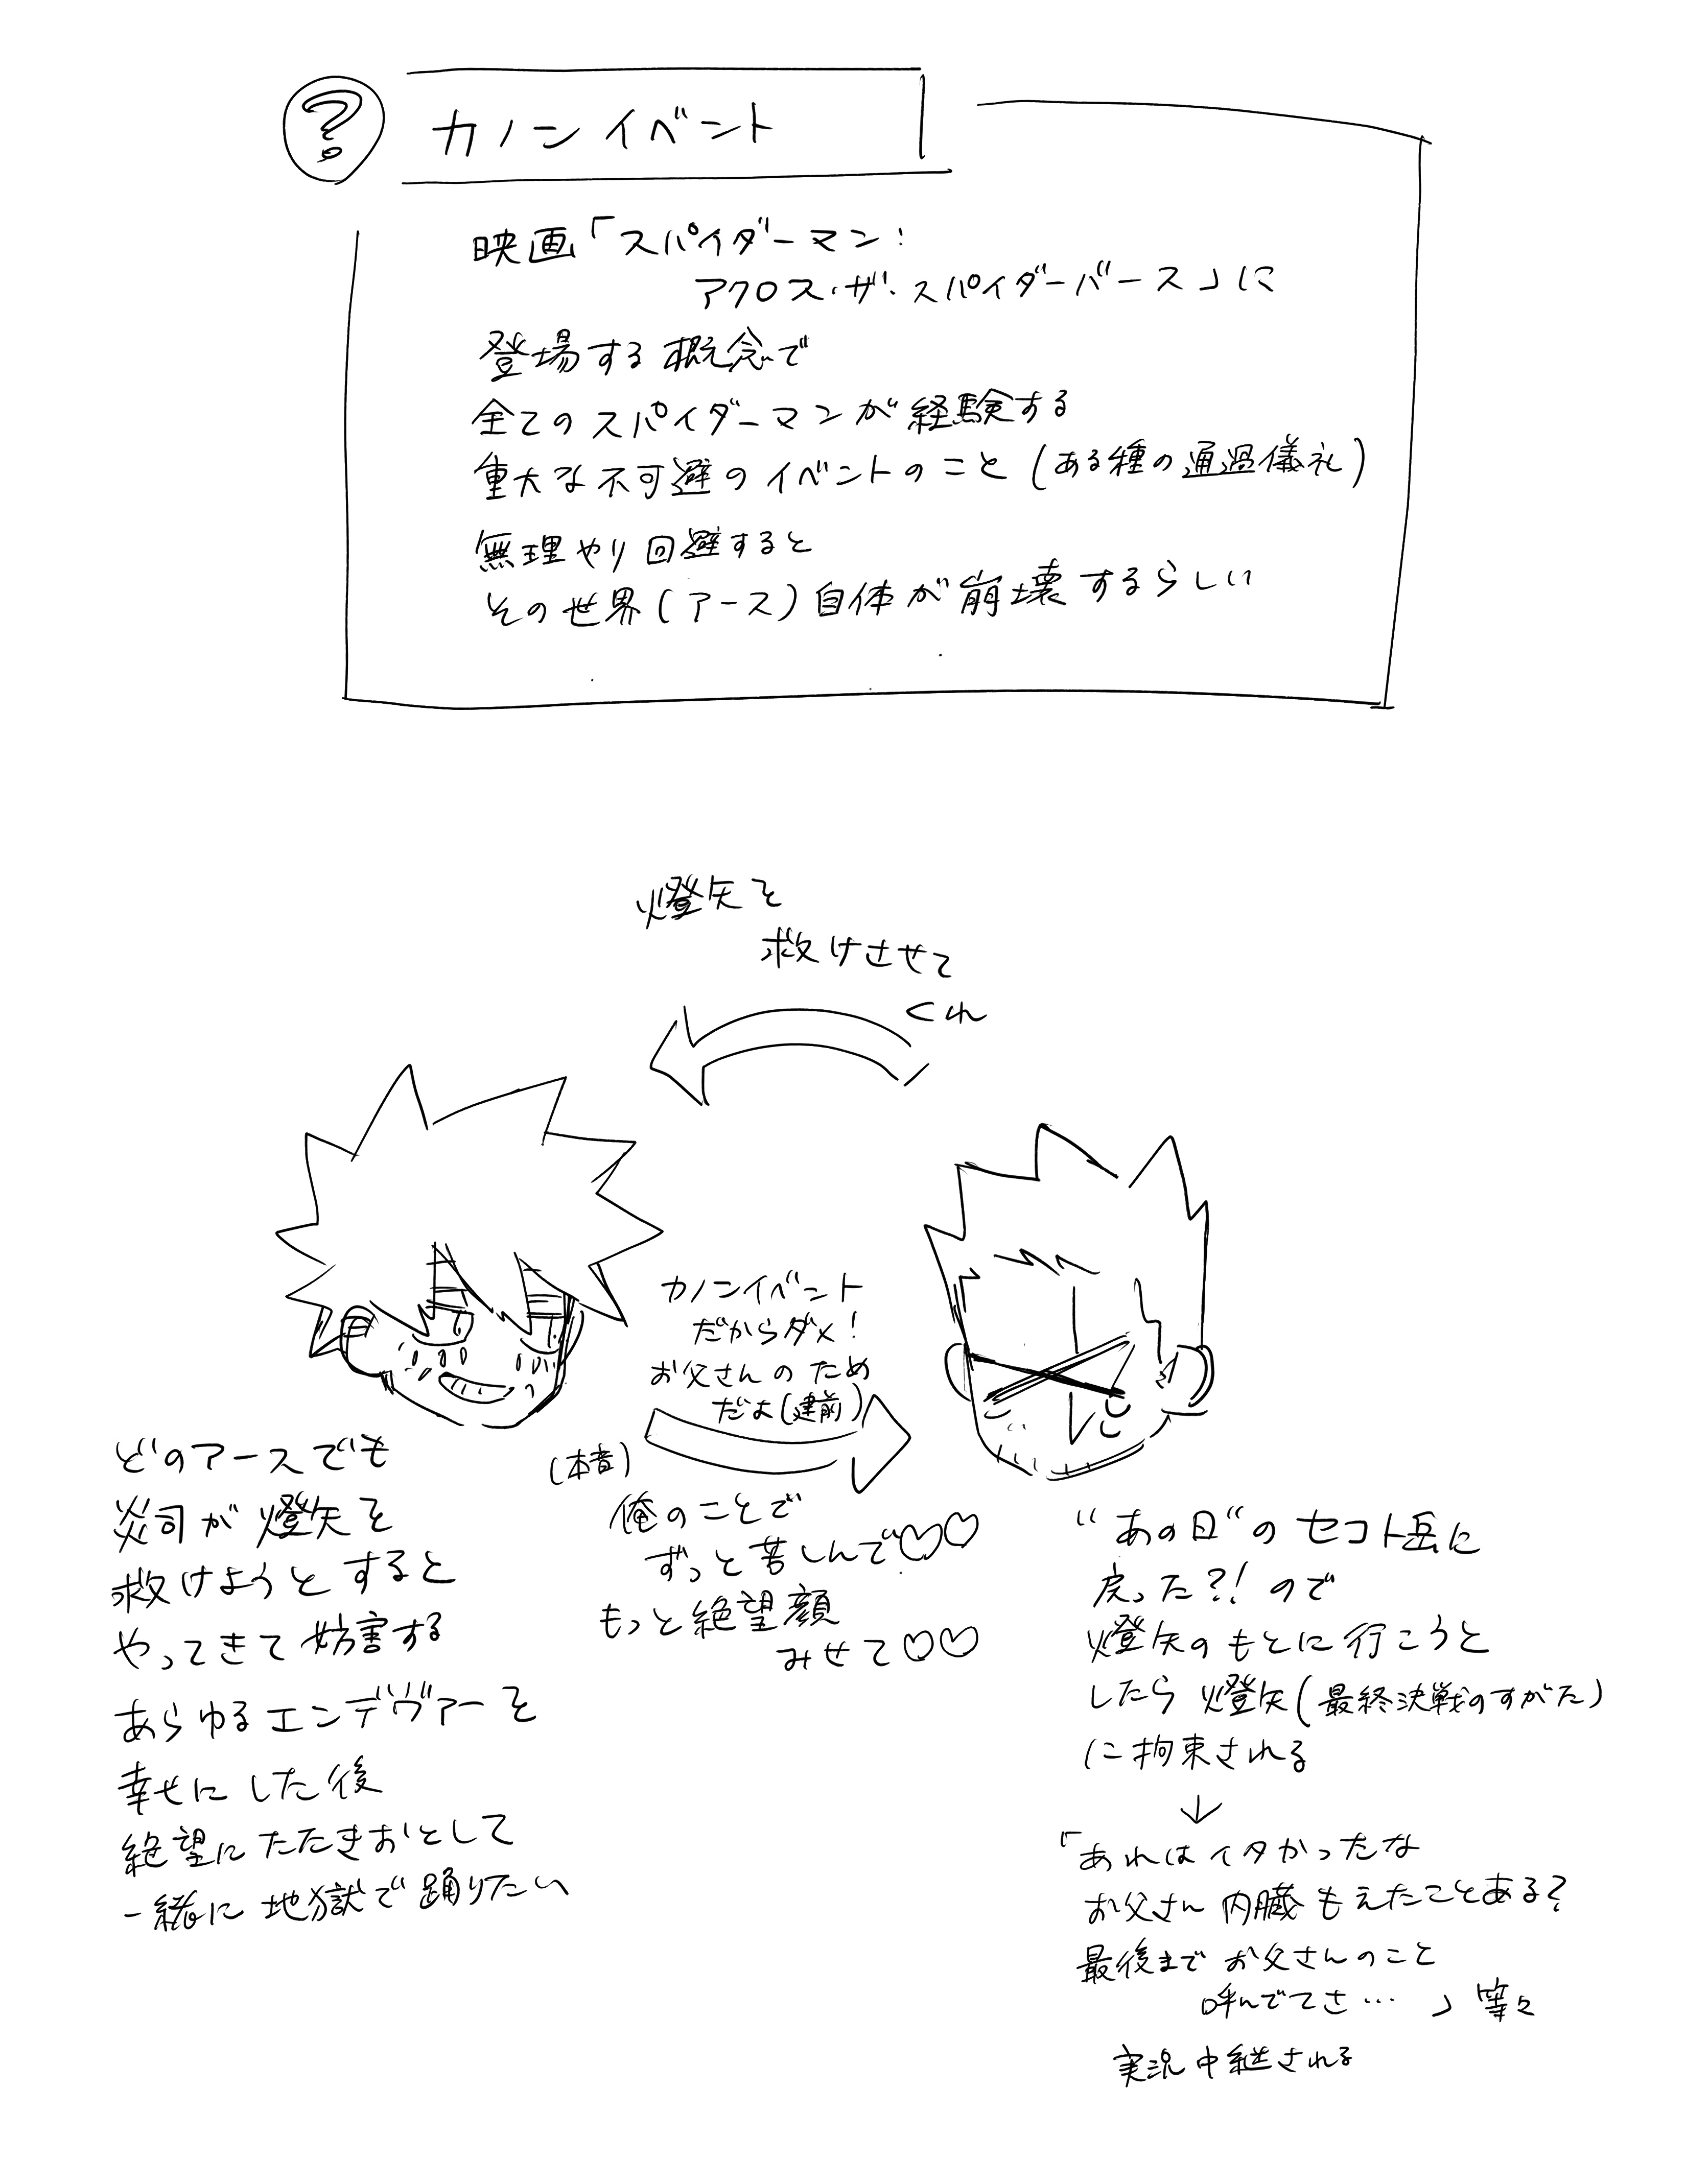 ?
カノンイベント
映画「スパイダーマン:
アクロス・ザ・スパイダーバース」に
登場する概念で
全てのスパイダーマンが経験する
重大な不可避のイベントのこと(ある種の通過儀礼)
無理やり回避すると
その世界(アース)自体が崩壊するらしい
燈矢を
救けさせて
くれ
カノンイベント
だからダメ!
お父さんのため
だよ(建前)
(本音)
俺のことで
ずっと苦しんで♡♡
もっと絶望顔
みせて♡♡
どのアースでも
炎司が燈矢を
救けようとすると
やってきて妨害する
あらゆるエンデヴァーを
幸せにした後
絶望にたたきおとして
一緒に地獄で踊りたい
“あの日“のセコト岳に
戻った?!ので
燈矢のもとに行こうと
したら燈矢(最終決戦のすがた)
に拘束される
↓
「あれはイタかったな
お父さん内臓もえたことある?
最後までお父さんのこと
呼んでてさ…」等々
実況中継される